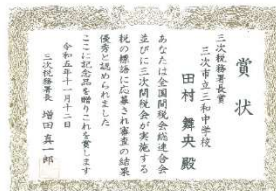 賞状
三次税務署長賞
三次市立三和中学校
田村 舞央 殿
あなたは全国間税会総連合会
並びに三次間税会が実施する
税の標語に応募され審査の結果
優秀と認められました
ここに記念品を贈りこれを賞します
令和五年十一月十二日
三次税務署長 増田 真一郎